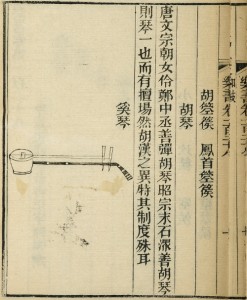 樂書卷一百二十八
胡箜篌 鳳首箜篌
胡琴
唐文宗朝女伶鄭中丞善彈胡琴昭宗末石潨善胡琴
則琴一也而有擅場然胡漢之異特其制度殊耳
奚琴